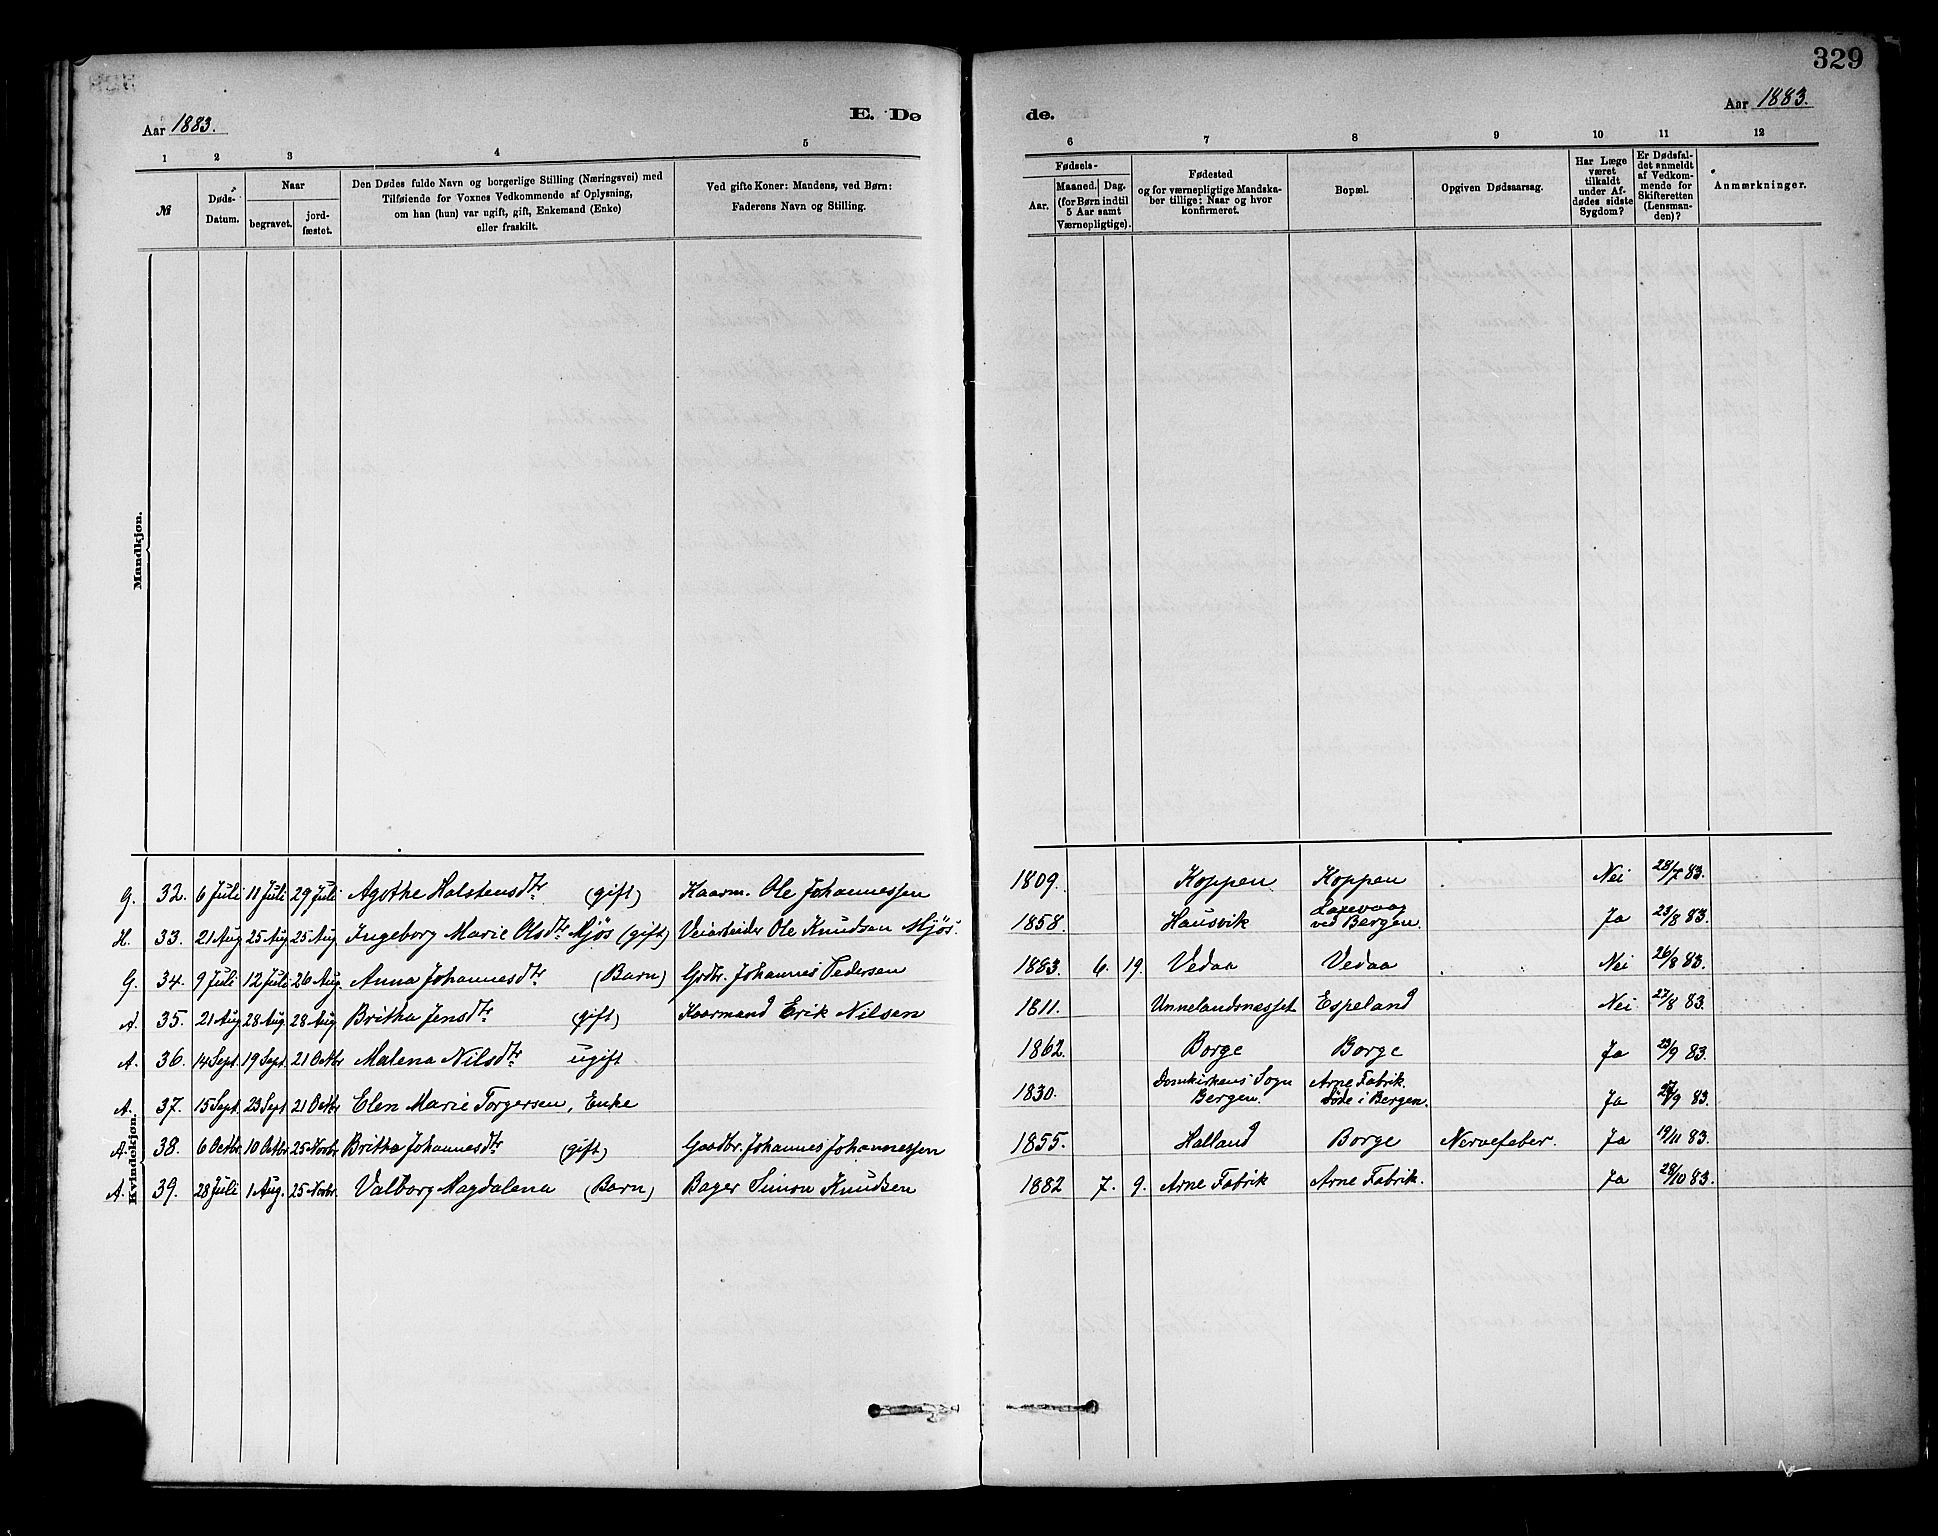 329
Aar 1883. E. Dø de. Aar 1883.
1 2 3 4 5 6 7 8 9 10 11 12
№
Døds-
Datum.
Naar
begravet.
jord-
fæstet.
Den Dødes fulde Navn og borgerlige Stilling (Næringsvei) med
Tilføiende for Voxnes Vedkommende af Oplysning,
om han (hun) var ugift, gift, Enkemand (Enke)
eller fraskilt.
Ved gifte Koner: Mandens, ved Børn:
Faderens Navn og Stilling.
Fødsels-
Aar.
Maaned. Dag.
(for Børn indtil
5 Aar samt
Værnepligtige).
Fødested
og for værnepligtige Mandska-
ber tillige: Naar og hvor
konfirmeret.
Bopæl.
Opgiven Dødsaarsag.
Har Læge
været
tilkaldt
under Af-
dødes sidste
Sygdom?
Er Dødsfal-
det anmeldt
af Vedkom-
mende for
Skifteretten
(Lensman-
den)?
Anmærkninger.
Mandkjøn.
Kvindekjøn.
G. 32. 6 Juli 11 Juli 29 Juli Agothe Halstensdtr (gift) Kaarm. Ole Johannessen 1809. Koppen Koppen Nei 28/7 83.
H. 33. 21 Aug 25 Aug 25 Aug Ingeborg Marie Olsdtr Mjøs (gift) Veiarbeider Ole Knudsen Mjøs. 1858. Hausvik Laxevaag ved Bergen. Ja 23/8 83.
G. 34. 9 Juli 12 Juli 26 Aug. Anna Johannesdtr (Barn) Grdbr. Johannes Pedersen 1883. 6. 19. Vedaa Vedaa Nei 26/8 83.
A. 35. 21 Aug 28 Aug. 28 Aug Britha Jensdtr (gift) Kaarmand Erik Nilsen 1811. Unnelandsnesset Espeland Nei 27/8 83.
A. 36. 14 Sept. 19 Sept. 21 Octbr Malena Nilsdtr ugift 1862. Borge Borge Ja 23/9 83.
A. 37. 15 Sept. 23 Sept 21 Octbr Elen Marie Torgersen, Enke 1830. Domkirkens Sogn Bergen. Arne Fabrik. døde i Bergen. Ja 27/9 83.
A. 38. 6 Octbr. 10 Octbr 25 Novbr. Britha Johannesdtr (gift) Gaadbr. Johannes Johannessen 1855. Halland Borge Nervefeber. Ja 19/11 83.
A. 39. 28 Juli 1 Aug. 25 Novbr. Valborg Magdalena (Barn) Bager Simon Knudsen 1882 7. 9. Arne Fabrik Arne Fabrik. Ja 28/10 83.